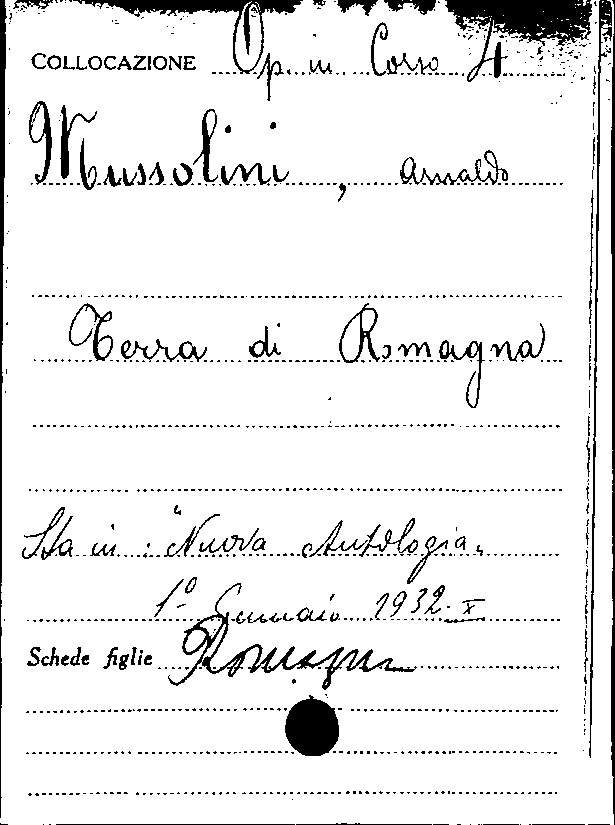 COLLOCAZIONE Op. in Corso 4
Mussolini, Arnaldo
Terra di Romagna
Sta in: "Nuova Antologia"
1º Gennaio 1932.X
Schede figlie Romagna